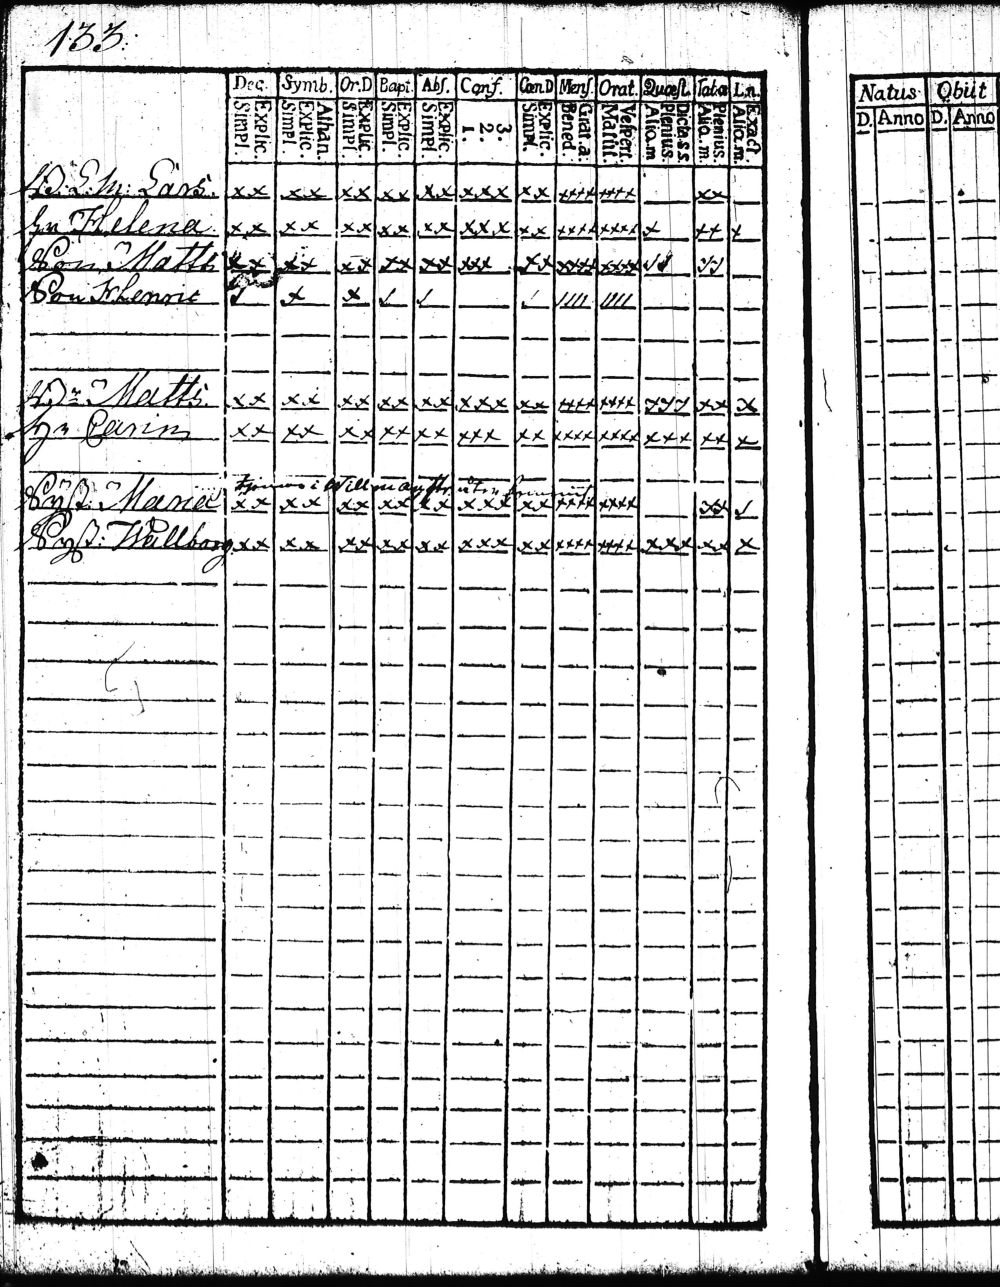 133.
Dec. Symb. Or.D Bapt. Abs. Conf. Cœn.D Mens. Orat. Quæst. Tabæ L.n.
Simpl. Explic. Simpl. Explic. Athan. Simpl. Explic. Simpl. Explic. Simpl. Explic. 1. 2. 3. Simpl. Explic. Bened. Grat.a. Matut. Vesper. Aliq.m Plenius. Dicta s.s. Aliq.m. Plenius. Aliq.m. Exact.
Natus Obiit
D. Anno D. Anno
Lars. xx xx xx xx xx xxx xx xxxx xxxx xx
Hu Helena xx xx xx xx xx xxx xx xxxx xxxx x xx x
Son Matts xx xx xx xx xx xxx xx xxxx xxxx
Son Henric x x
Matts. xx xx xx xx xx xxx xx xxxx xxxx xx x
Hu Carin xx xx xx xx xx xxx xx xxxx xxxx xxx xx x
i Willmanstr
Syst: Maria xx xx xx xx xx xxx xx xxxx xxxx xx
Syst: Wallborg xx xx xx xx xx xxx xx xxxx xxxx xxx xx x